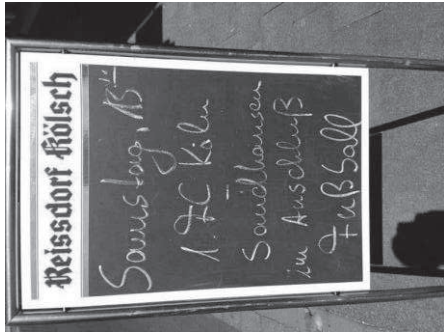 Reissdorf Kölsch
Samstag, 13°°
1. FC Köln
-
Sandhausen
im Anschluß
Fußball